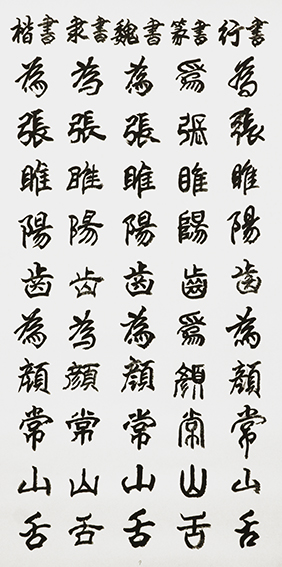 楷書 隶書 魏書 篆書 行書
為張睢陽歯為顔常山舌
為張睢陽齿為顔常山舌
為張睢陽歯為顔常山舌
爲張睢陽齒爲顔常山舌
為張睢陽歯為顔常山舌